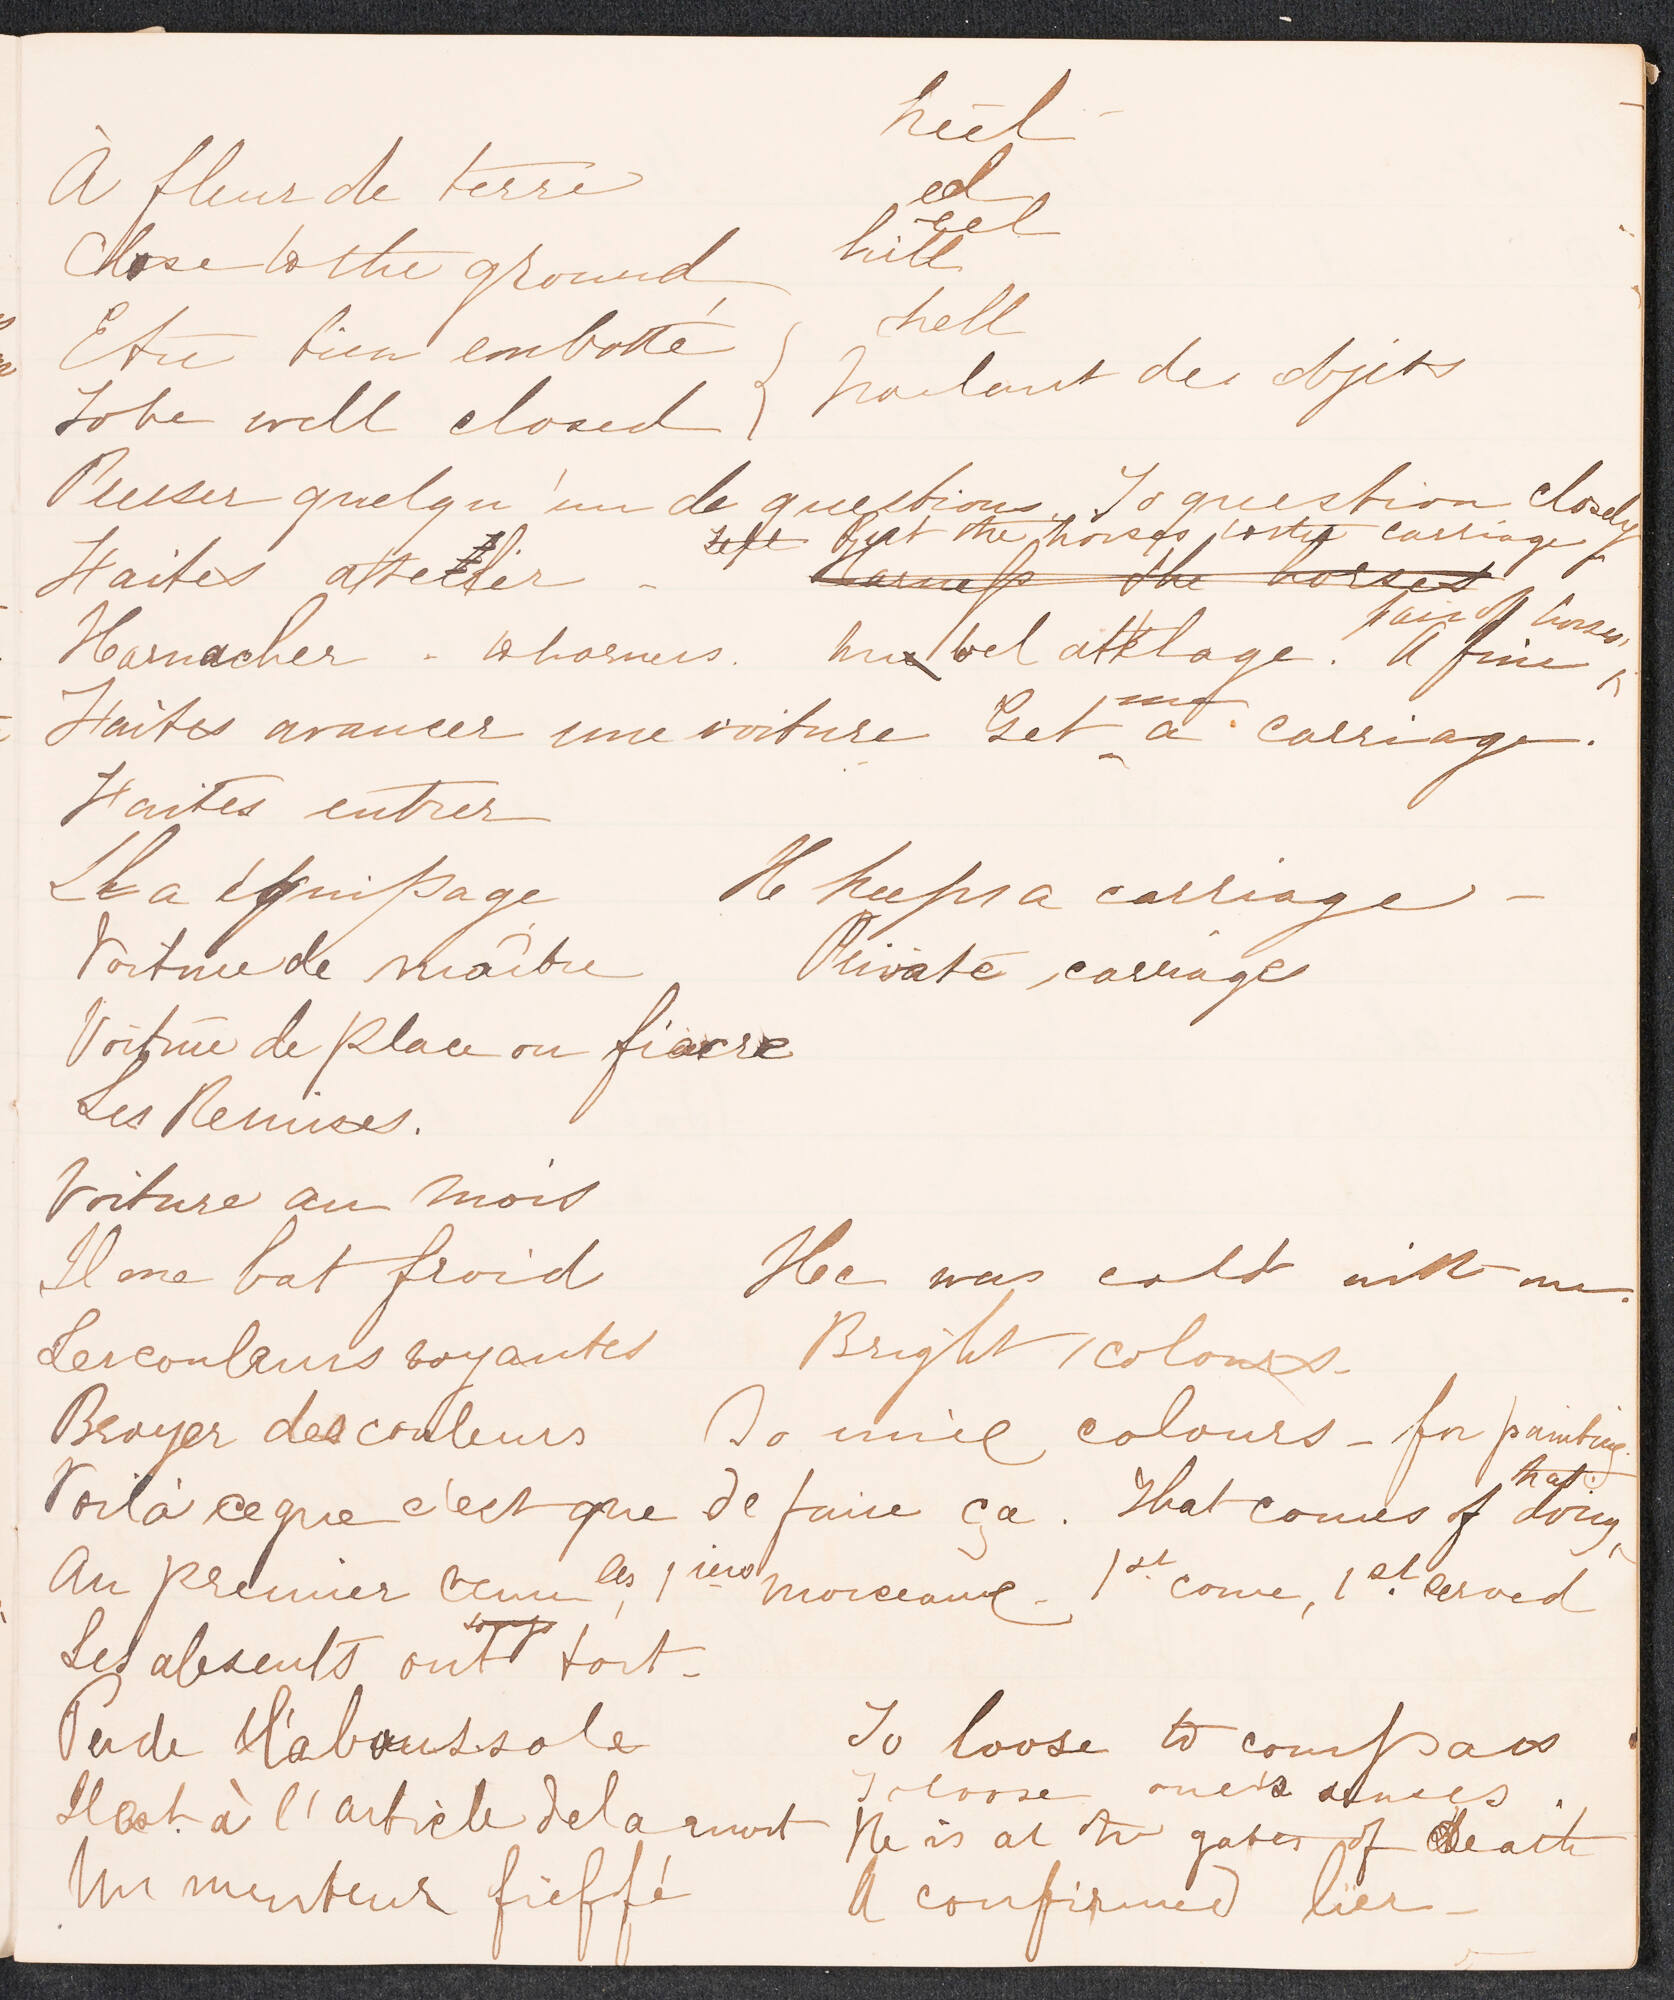 heel -
À fleur de terre
eel
eel
Close to the ground
hill
hell
Etre bien emboîté
Parlant des objets
To be well closed
Presser quelqu'un de questions. To question closely
Put the horses to the carriage
Faites atteler - Harness the horses
pair of horses
Harnacher - to harness. Un bel attelage. A fine
me
Faites avancer une voiture Get a carriage.
Faites entrer
Il a équipage He keeps a carriage -
Voiture de maître Private carriages
Voiture de place ou fiacre
Les Remises.
Voiture au mois
Il me bat froid Hee was cold with me.
Les couleurs voyantes Bright colours -
Broyer des couleurs To mix colours - for painting.
that
Voilà ce que c'est que de faire ça. That comes of doing
Au premier venu, les 1iers morceaux - 1st come, 1st served
Les absents ont tort -
Perde l'aboussole To loose to compass
To loose one's senses.
Il est à l'article de la mort He is at the gates of death
Un menteur fieffé A confirmed lier -